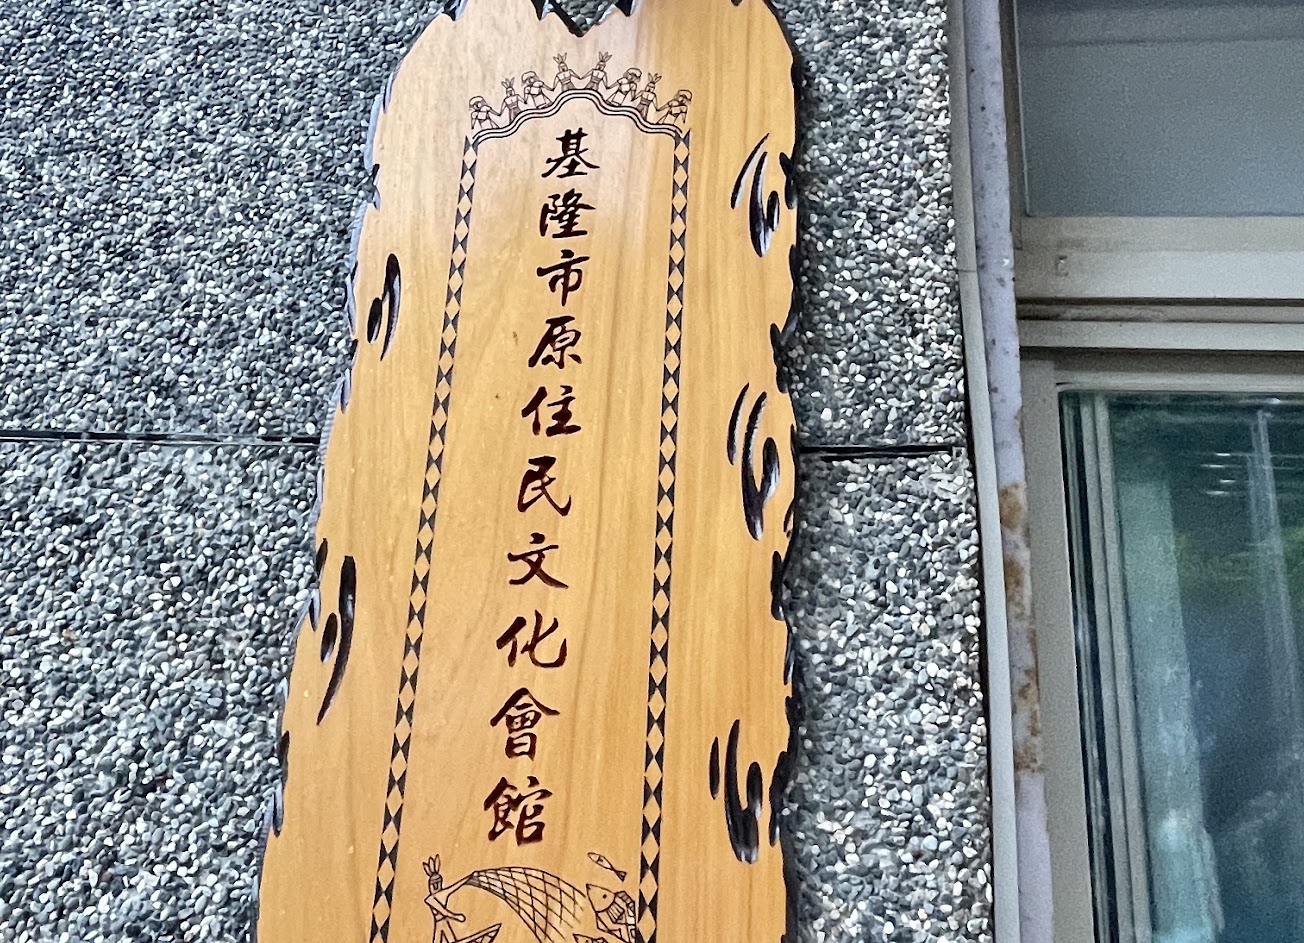 基隆市原住民文化會館